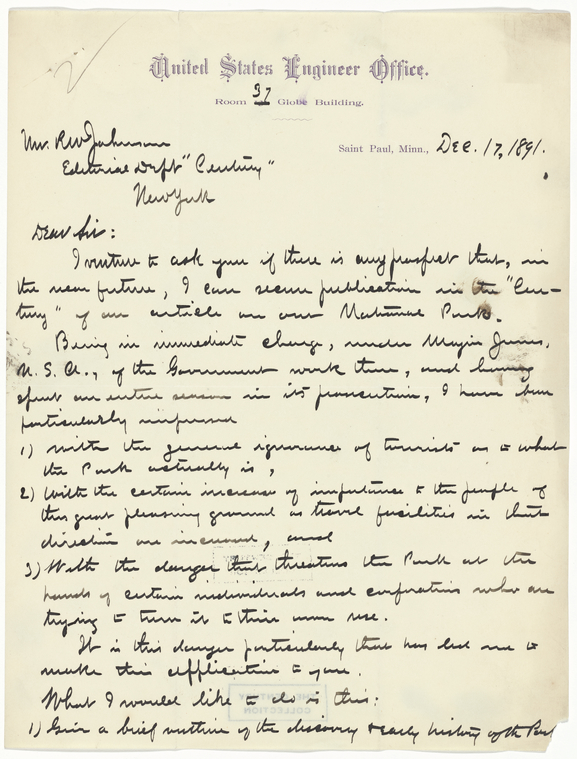 United States Engineer Office.
Room 37 Globe Building.
Saint Paul, Minn., Dec. 17, 1891.
Mr. R W Johnson
Editorial Dep't "Century"
New York
Dear Sir:
I venture to ask you if there is any prospect that, in
the near future, I can secure publication in the "Cen-
tury" of an article on our National Park.
Being in immediate charge, under Major Jones,
U. S. A., of the Government work there, and having
spent an entire season in its prosecution, I have been
particularly impressed
1) With the general ignorance of tourists as to what
the Park actually is,
2) With the certain increase of importance to the people of
this great pleasuring ground as travel facilities in that
direction are increased, and
3) With the danger that threatens the Park at the
hands of certain individuals and corporations who are
trying to turn it to their own use.
It is this danger particularly that has led me to
make this application to you.
What I would like to do is this:
1) Give a brief outline of the discovery & early history of the Park
THE CENTURY
COLLECTION